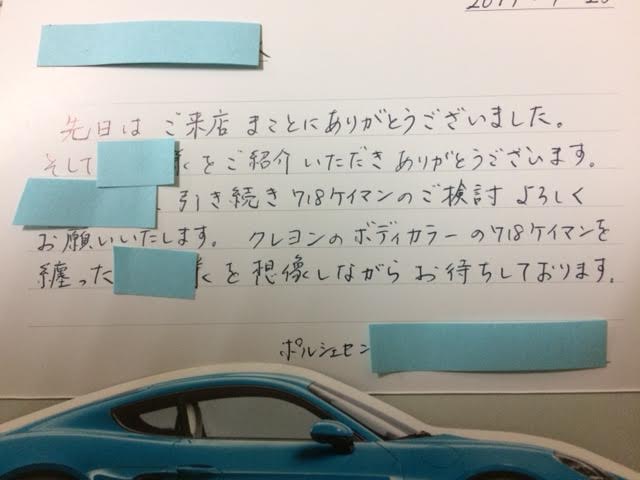 先日は ご来店 まことにありがとうございました。
そして 様をご紹介いただきありがとうございます。
引き続き718ケイマンのご検討よろしく
お願いいたします。 クレヨンのボディカラーの718ケイマンを
纏った 様を想像しながらお待ちしております。
ポルシェセン